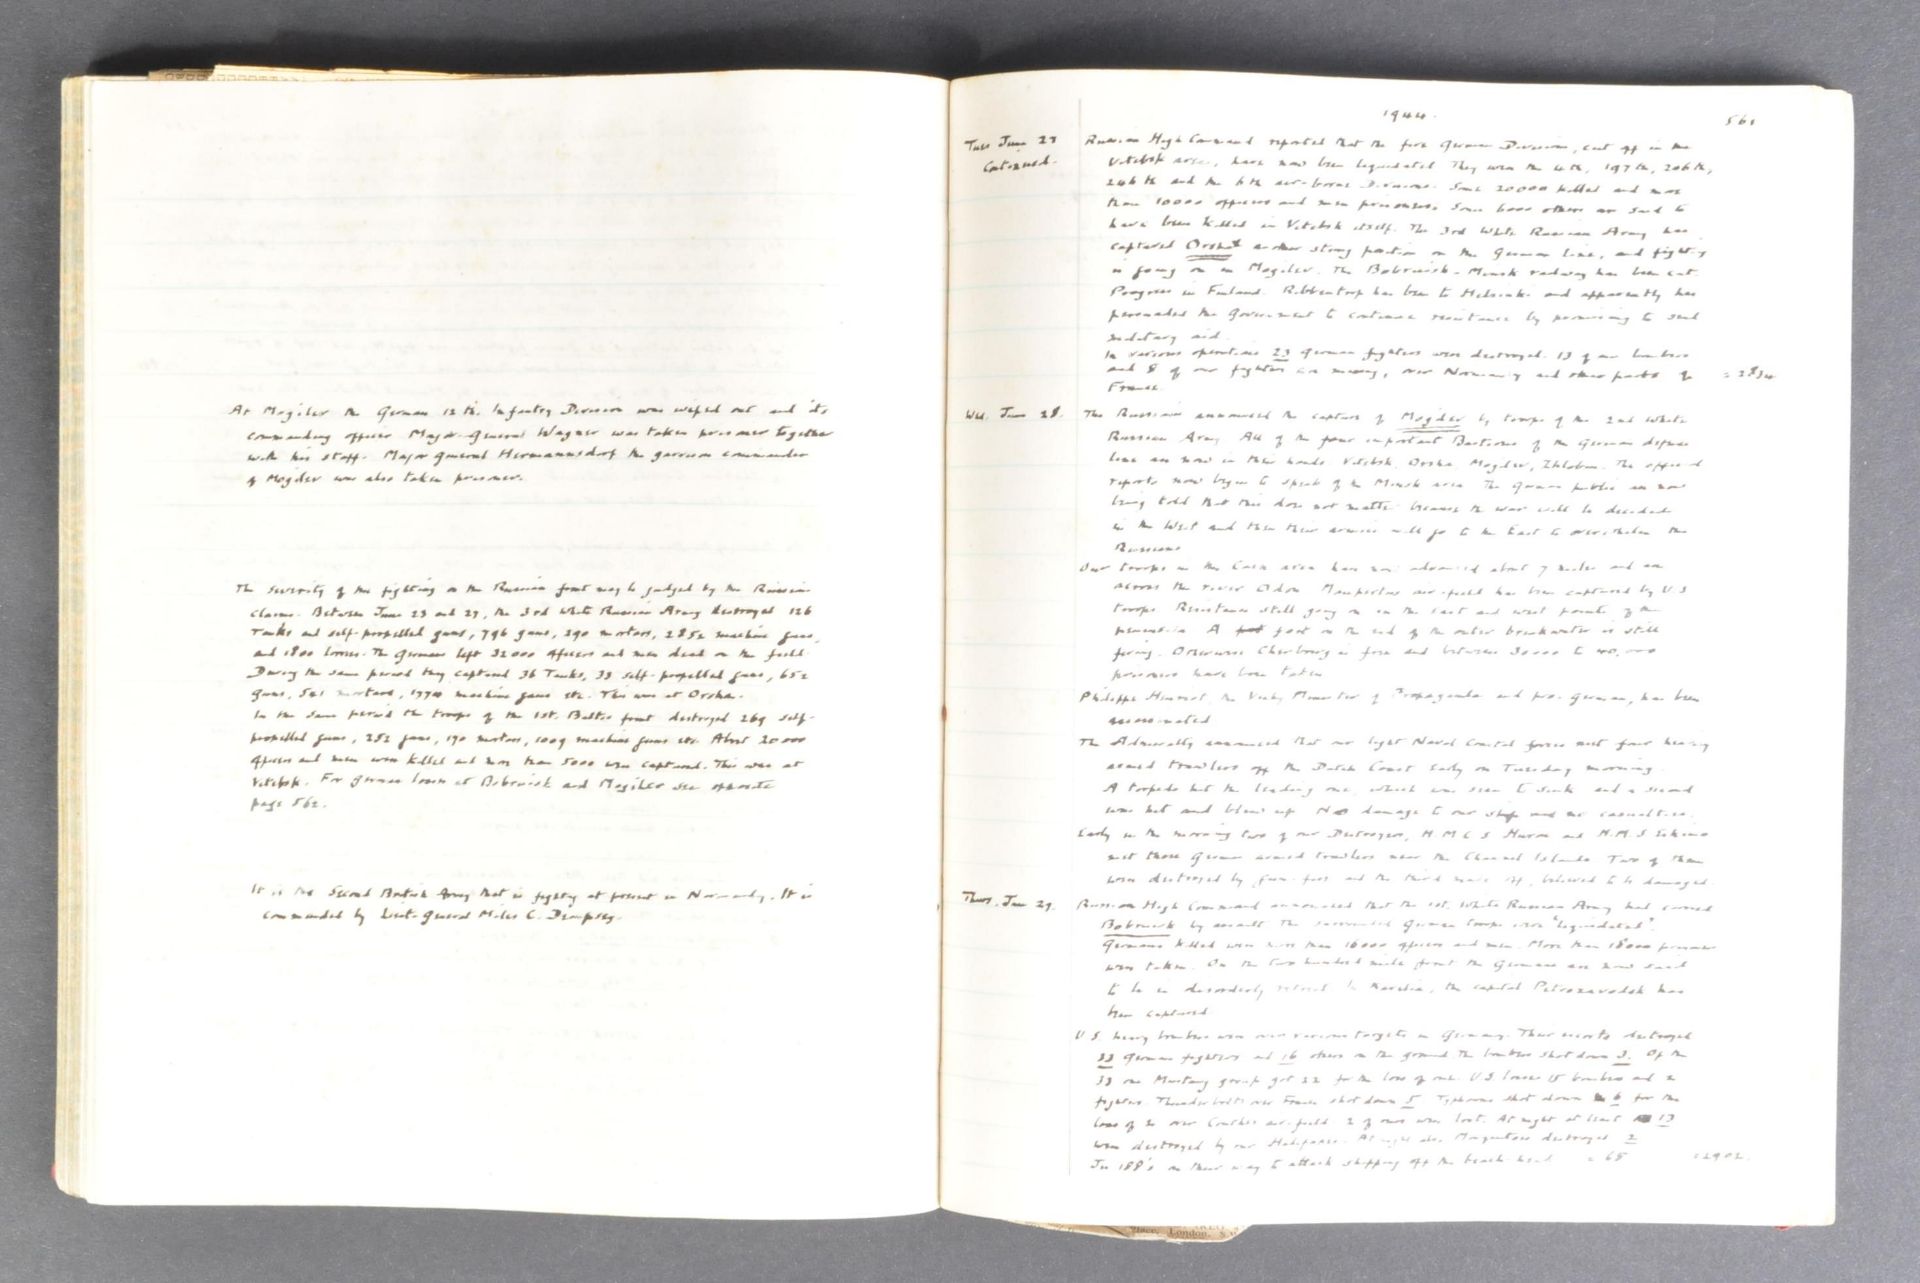 At Mogilev the German 12th. Infantry Division was wiped out and its
commanding officer Major-General Wagner was taken prisoner together
with his staff. Major General Hermannsdorf the garrison commander
of Mogilev was also taken prisoner.
The severity of the fighting on the Russian front may be judged by the Russian
claims. Between June 23 and 27, the 3rd White Russian Army destroyed 126
Tanks and self-propelled guns, 796 guns, 290 mortars, 2852 machine guns,
and 1800 lorries. The Germans left 32000 officers and men dead on the field.
During the same period they captured 36 Tanks, 33 self-propelled guns, 652
guns, 541 mortars, 1774 machine guns etc. This was at Orsha.
In the same period the troops of the 1st. Baltic front destroyed 269 self-
propelled guns, 252 guns, 190 mortars, 1009 machine guns etc. About 20000
officers and men were killed and more than 5000 were captured. This was at
Vitebsk. For German losses at Bobruisk and Mogilev see opposite
page 562.
It is the Second British Army that is fighting at present in Normandy. It is
commanded by Lieut-General Miles C. Dempsey.
1944.
561
Tues June 27
Continued.
Russian High Command reported that the five German Divisions, cut off in the
Vitebsk area, have now been liquidated. They were the 4th, 197th, 206th,
246th and the 6th air-borne Divisions. Some 20000 killed and more
than 10000 officers and men prisoners. Some 6000 others are said to
have been killed in Vitebsk itself. The 3rd White Russian Army has
captured Orsha another strong position on the German line, and fighting
is going on in Mogilev. The Bobruisk-Minsk railway has been cut.
Progress in Finland. Ribbentrop has been to Helsinki and apparently has
persuaded the Government to continue resistance by promising to send
military aid.
In various operations 23 German fighters were destroyed. 13 of our bombers
and 8 of our fighters are missing, over Normandy and other parts of = 2834
France.
Wed. June 28.
The Russians announced the capture of Mogilev by troops of the 2nd White
Russian Army. All of the four important Bastions of the German defence
line are now in their hands. Vitebsk, Orsha, Mogilev, Zhlobin. The official
reports now begin to speak of the Minsk area. The German public are now
being told that this does not matter because the war will be decided
in the West and then their armies will go to the East to overwhelm the
Russians
Our troops in the Caen area have now advanced about 7 miles and are
across the river Odon. Maupertus air-field has been captured by U.S
troops. Resistance still going on in the east and west points of the
peninsula. A fort on the end of the outer breakwater is still
firing. Otherwise Cherbourg is free and between 30000 to 40,000
prisoners have been taken
Philippe Henriot, the Vichy Minister of Propaganda and pro-German, has been
assassinated
The Admiralty announced that our light Naval Coastal forces met four heavy
armed trawlers off the Dutch Coast early on Tuesday morning.
A torpedo hit the leading one, which was seen to sink and a second
was hit and blew up. No damage to our ships and no casualties.
Early in the morning two of our Destroyers, H M C S Huron and H.M.S Eskimo
met three German armed trawlers near the Channel Islands. Two of them
were destroyed by gun-fire and the third made off, believed to be damaged.
Thurs. June 29
Russian High Command announced that the 1st. White Russian Army had carried
Bobruisk by assault. The surrounded German troops were "liquidated".
Germans killed were more than 16000 officers and men. More than 18000 prisoners
were taken. On the two hundred mile front the Germans are now said
to be in disorderly retreat. In Karelia, the capital Petrozavodsk has
been captured.
U S. heavy bombers were over various targets in Germany. Their escorts destroyed
33 German fighters and 16 others on the ground. The bombers shot down 3. Of the
33 one Mustang group got 22 for the loss of one. U.S. losses 15 bombers and 2
fighters. Thunderbolts over France shot down 5. Typhoons shot down 6 for the
loss of 2 over Conches air-field. 2 of ours were lost. At night at least 13
were destroyed by our Halifaxes. At night also Mosquitoes destroyed 2
Ju 188's on their way to attack shipping off the beach-head = 68 = 2902.
Place, London. S.W